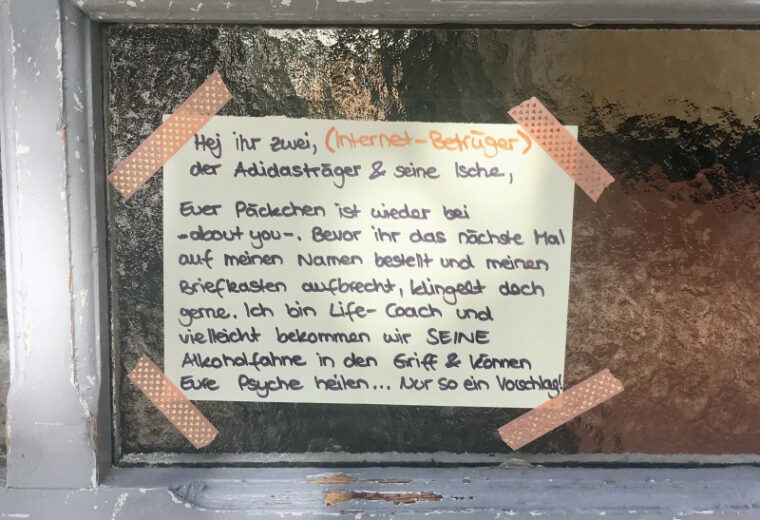 Hej ihr zwei, (Internet-Betrüger)
der Adidasträger & seine Ische,
Euer Päckchen ist wieder bei
-about you-. Bevor ihr das nächste Mal
auf meinen Namen bestellt und meinen
Briefkasten aufbrecht, klingelt doch
gerne. Ich bin Life-Coach und
vielleicht bekommen wir SEINE
Alkoholfahne in den Griff & können
Eure Psyche heilen... Nur so ein Vorschlag!